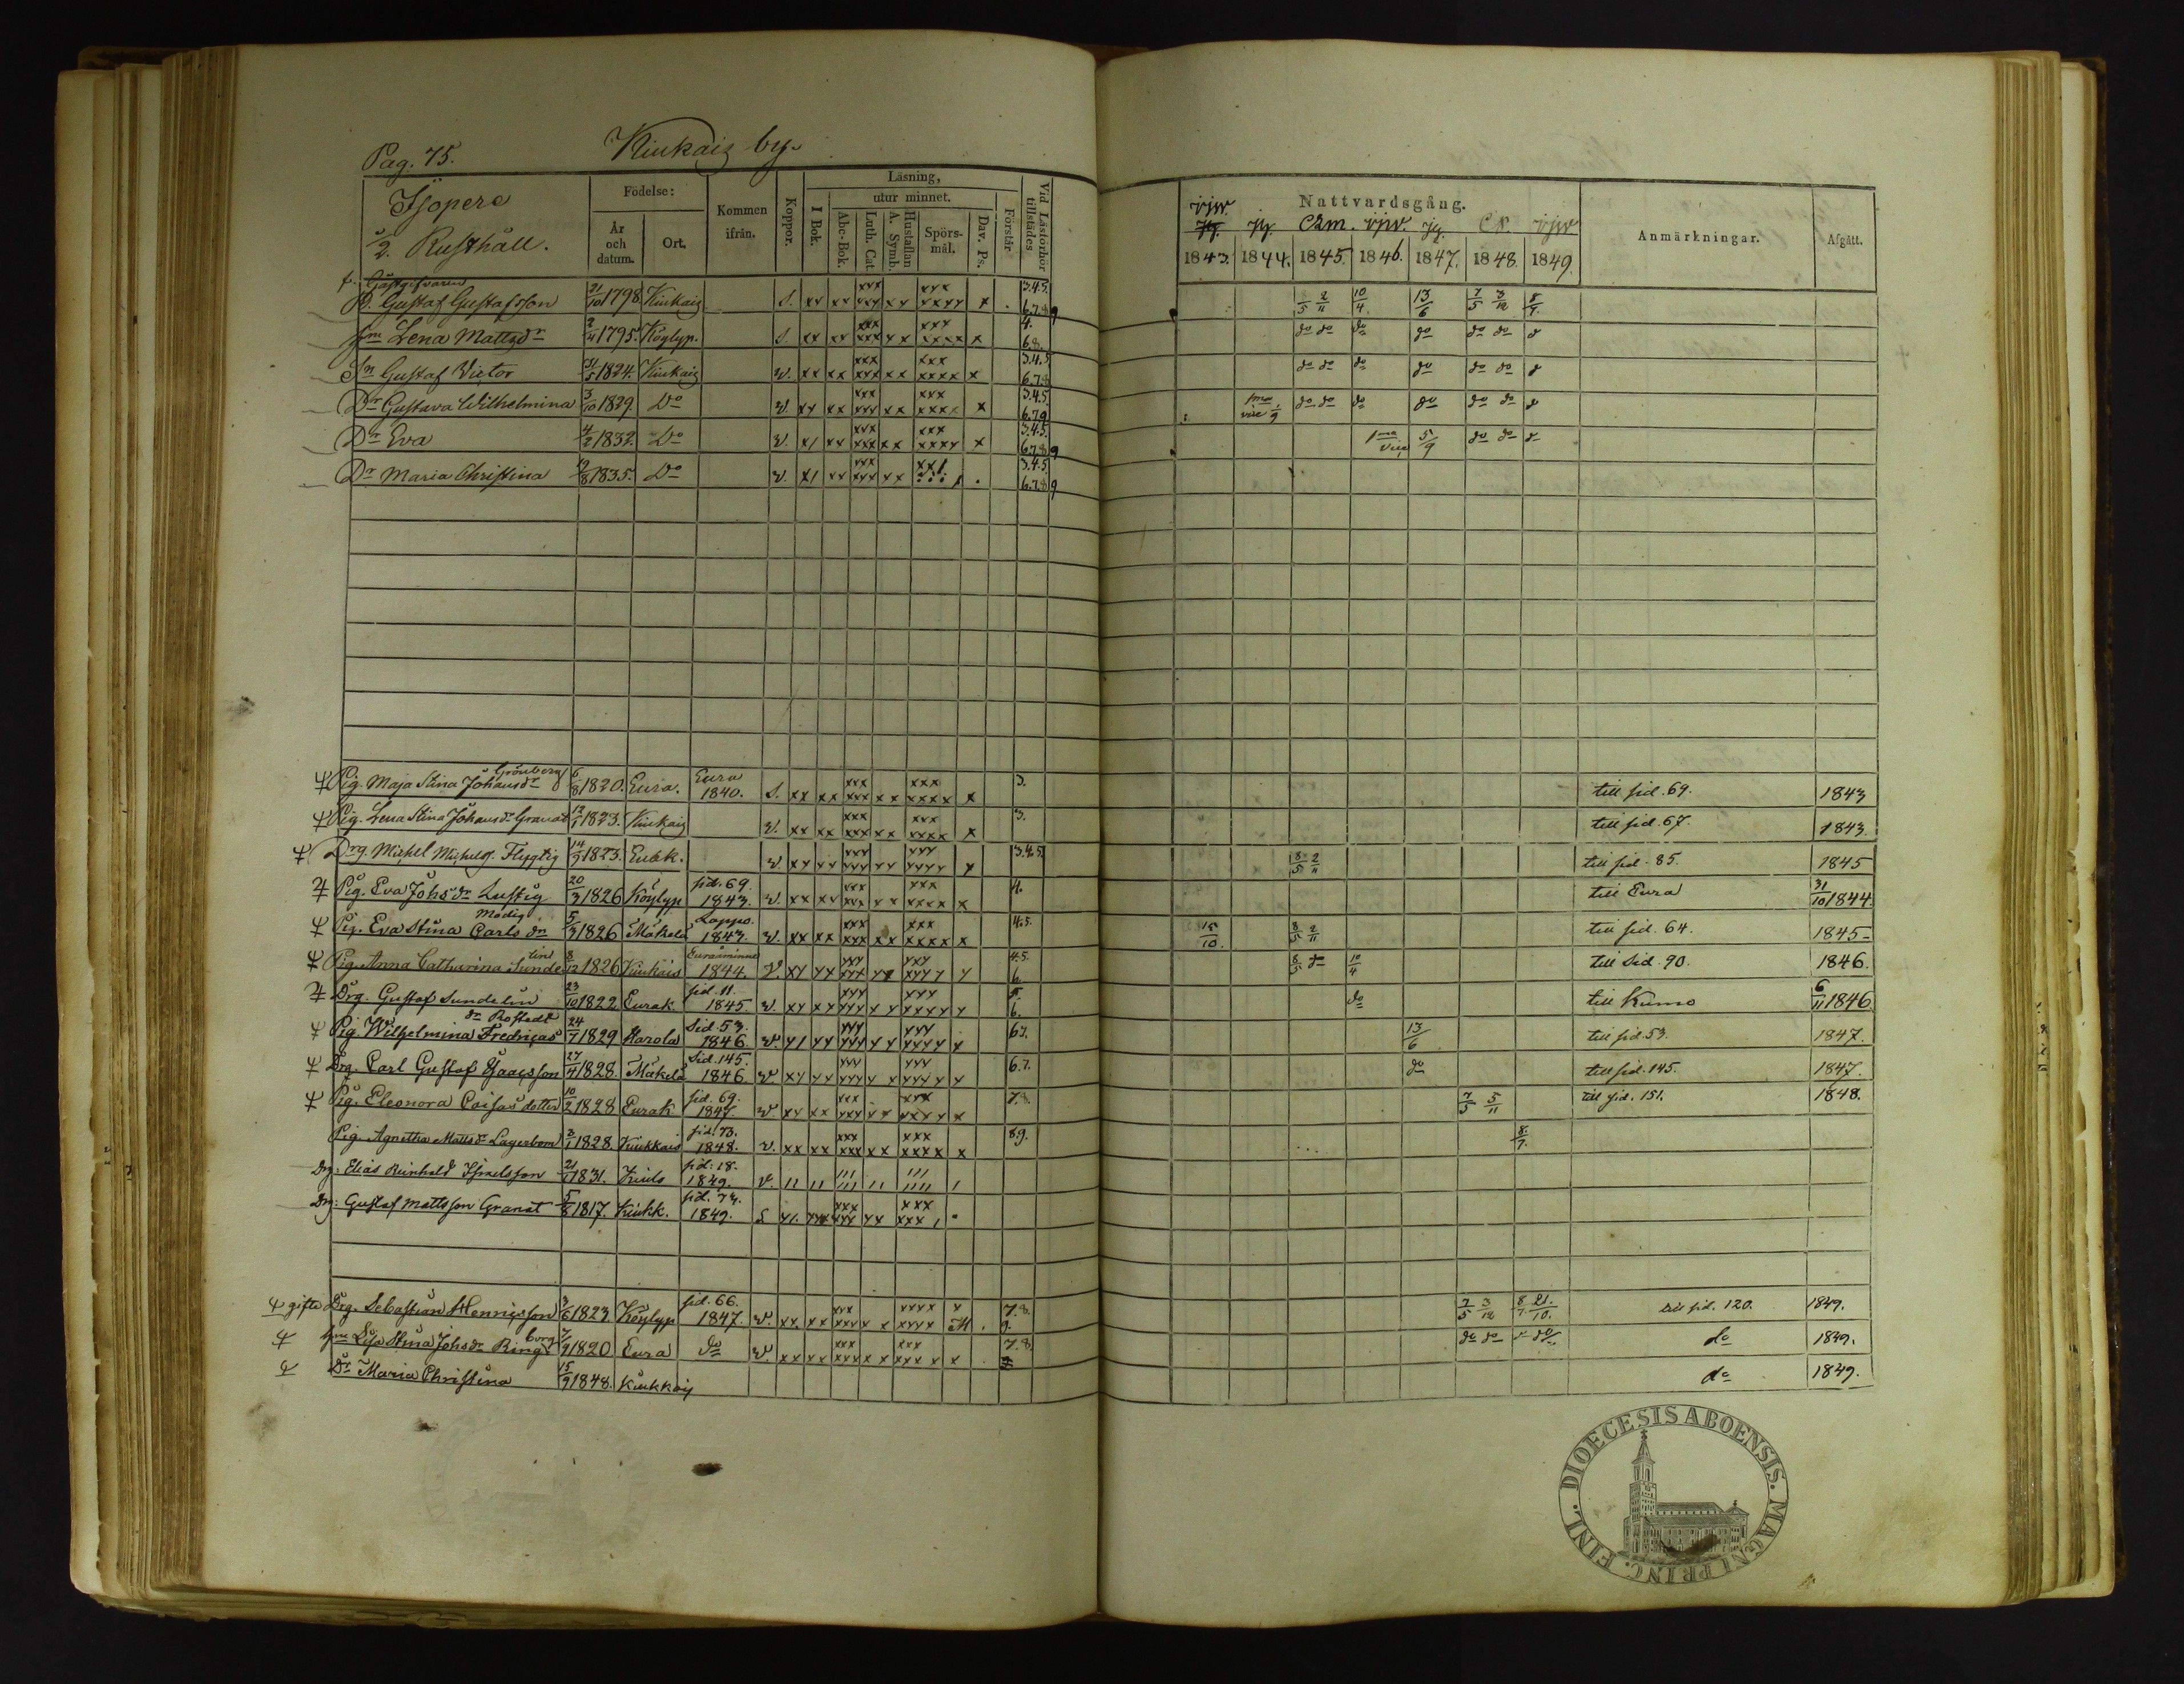 Pag. 75. Kiukais by.
Isjopere
2. Rusthåll.
Födelse:
År och datum.
Ort.
Kommen ifrån.
Koppor.
Läsning,
I Bok.
utur minnet.
Abc-Bok.
Luth. Cat.
Hustaflan A. Symb.
Spörsmål.
Dav. Ps.
Förstår
Vid Läsförhör tillstädes
Nattvardsgång.
1843. 1844. 1845. 1846. 1847. 1848. 1849.
Anmärkningar.
Afgått.
f. Gästgifvaren
B. Gustaf Gustafsson 21/10 1798 Kiukais S. 3.4.5. 6.7.8.9 10/4 13/6 7/5 3/12 8/7
Lena Mattsdr 2/4 1795. Köylyp. S. 4. 6.8. do do do do do do
Sn Gustaf Victor 1824. Kiukais v. 3.4.5 6.7.8 do do do do do do
Dr Gustava Wilhelmina 3/10 1829 Do v. 3.4.5. 6.7.9 do do do do do do
Dr Eva 4/2 1832. Do v. 3.4.5. 6.7.8.9 5/9 do do
Dr Maria Christina 1835. Do v. 3.4.5. 6.7.8.9
Pig. Maja Stina Johansdr Grönberg 6/8 1820. Eura. Eura 1840. S. 3. till sid. 69. 1843
Pig. Lena Stina Johansdr Granat 12/1 1823. Kiukais v. 3. till sid. 67. 1843.
Drg. Michel Michels. Flygtig 14/9 1823. Eubk. v 3.4.5. 8/5 2/11 till sid. 85. 1845
Pig. Eva Johsdr Lustig 20/3 1826 Köylyp sid. 69. 1843. v. 4. till Eura 31/10 1844
Pig. Eva Stina Carlsdr Modig 5/3 1826 Mäkelä Lappo. 1843. v. 4.5. 15/10. 8/5 2/11 till sid. 64. 1845
Pig. Anna Catharina Sundelin 8/12 1826 Kiukais Euraåminne 1844. v. 4.5. 6 8/5 do 10/4 till Sid. 90. 1846.
Drg. Gustaf Sundelin 23/10 1822 Eurak. sid. 11. 1845. v. 5. 6. do till Kumo 6/11 1846.
Pig Wilhelmina Fredricas dr Rostedt 24/7 1829 Harola Sid. 53. 1846. v. 6.7. 13/6 till sid. 53. 1847.
Drg. Carl Gustaf Isaacsson 27/4 1828. Mäkelä Sid. 145. 1846. v 6.7. do till sid. 145. 1847.
Pig. Eleonora Caisas dotter 10/2 1828 Eurak sid. 69. 1847. v 7.8. 7/5 5/11 till sid. 151. 1848.
Pig. Agnetha Mattsdr Lagerbom 1828. Kiukkais sid. 73. 1848. v. 8.9. 8/7.
Drg: Elias Reinhold Israelsson 1831. Kiulo sid: 18. 1849. v.
Drg: Gustaf Mattsson Granat 5/8 1817. Kiukk. sid. 74. 1849. S
gifte Drg. Sebastian Hennicsson 3/6 1823. Köylyp sid. 66. 1847. v. 7.8. 9. 7/5 3/12 8/7 21/10. till sid. 120. 1849.
Lisa Stina Johsdr Ringborg 1820 Eura do v. 7.8. do do do 1849.
Dr Maria Christina 15/9 1848. Kiukkais do 1849.
DIOECESIS ABOENSIS. MAGNI PRINC. FINL.